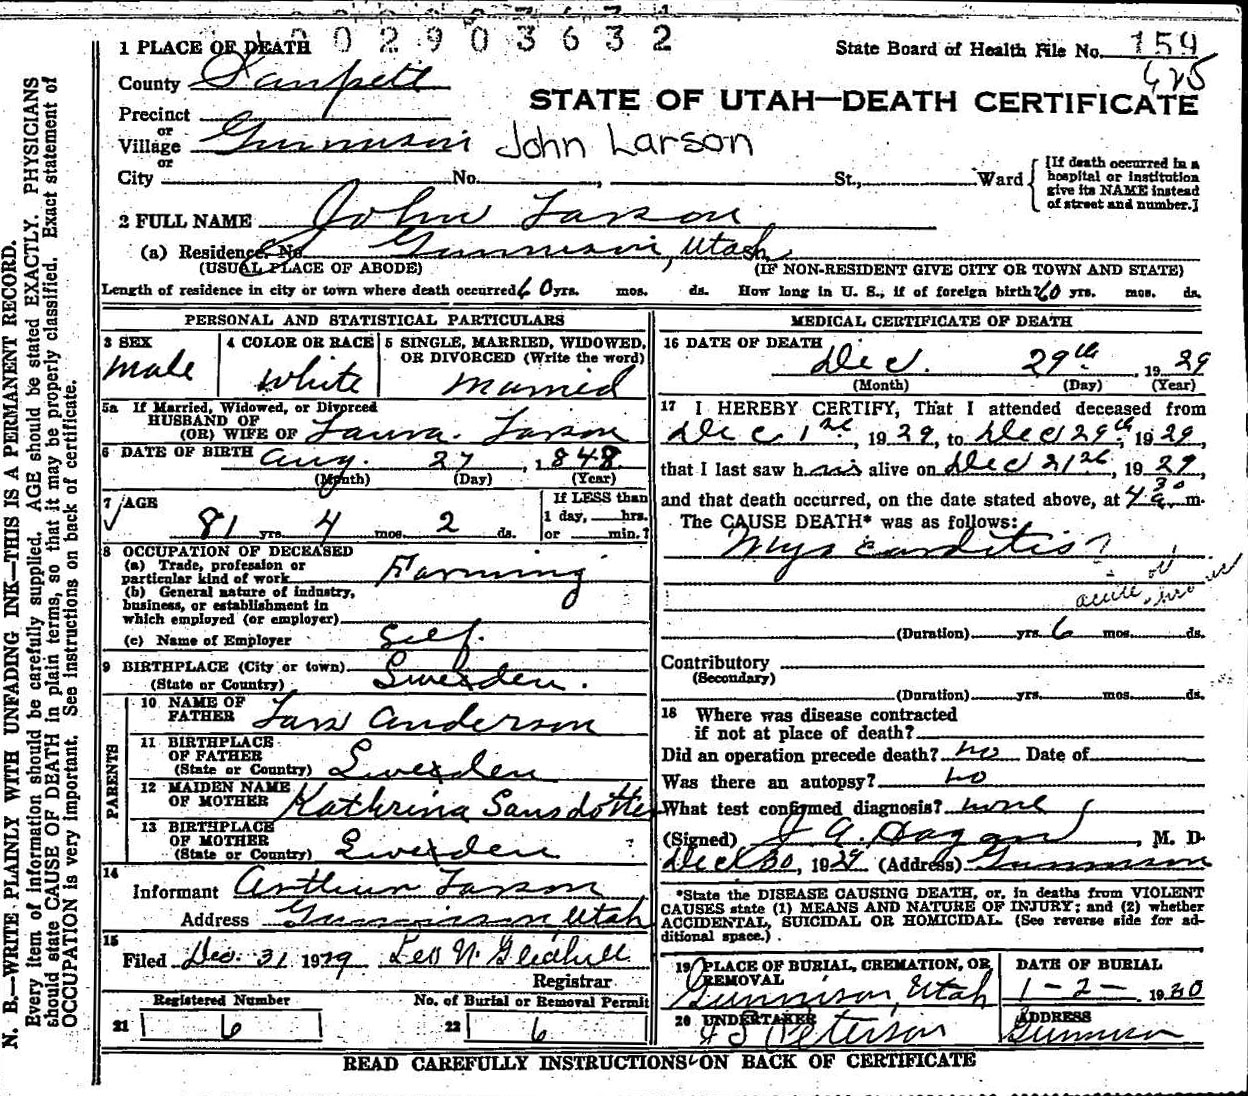 002903632
1 PLACE OF DEATH
State Board of Health File No. 159
425
County Sanpete
STATE OF UTAH—DEATH CERTIFICATE
Precinct
or
Village Gunnison John Larson
or
City No. , St., Ward
[If death occurred in a
hospital or institution
give its NAME instead
of street and number.]
2 FULL NAME John Larson
(a) Residence. No Gunnison, Utah
(USUAL PLACE OF ABODE) (IF NON-RESIDENT GIVE CITY OR TOWN AND STATE)
Length of residence in city or town where death occurred 60 yrs. mos. ds. How long in U. S., if of foreign birth? 60 yrs. mos. ds.
PERSONAL AND STATISTICAL PARTICULARS
3 SEX
Male
4 COLOR OR RACE
White
5 SINGLE, MARRIED, WIDOWED,
OR DIVORCED (Write the word)
Married
5a If Married, Widowed, or Divorced
HUSBAND OF
(OR) WIFE OF Laura Larson
6 DATE OF BIRTH Aug. 27, 1848
(Month) (Day) (Year)
7 AGE
81 yrs. 4 mos. 2 ds.
If LESS than
1 day, hrs.
or min.?
8 OCCUPATION OF DECEASED
(a) Trade, profession or
particular kind of work Farming
(b) General nature of industry,
business, or establishment in
which employed (or employer)
(c) Name of Employer Self.
9 BIRTHPLACE (City or town)
(State or Country) Sweden.
PARENTS
10 NAME OF
FATHER Lars Anderson
11 BIRTHPLACE
OF FATHER
(State or Country) Sweden
12 MAIDEN NAME
OF MOTHER Kathrina Sansdotter
13 BIRTHPLACE
OF MOTHER
(State or Country) Sweden
14
Informant Arthur Larson
Address Gunnison, Utah
15
Filed Dec. 31 1929 Leo N. Gledhill
Registrar
Registered Number No. of Burial or Removal Permit
21 6 22 6
MEDICAL CERTIFICATE OF DEATH
16 DATE OF DEATH
Dec. 29th, 1929
(Month) (Day) (Year)
17 I HEREBY CERTIFY, That I attended deceased from
Dec 1st, 1929, to Dec 29th, 1929,
that I last saw him alive on Dec 21st, 1929
and that death occurred, on the date stated above, at 4 30 a m.
The CAUSE DEATH* was as follows:
Myocarditis?
acute
(Duration) yrs. 6 mos. ds.
Contributory
(Secondary)
(Duration) yrs. mos. ds.
18 Where was disease contracted
if not at place of death?
Did an operation precede death? no Date of
Was there an autopsy? no
What test confirmed diagnosis? none
(Signed) J A Hagan, M. D.
Dec 30, 1929 (Address) Gunnison
*State the DISEASE CAUSING DEATH, or, in deaths from VIOLENT
CAUSES state (1) MEANS AND NATURE OF INJURY; and (2) whether
ACCIDENTAL, SUICIDAL OR HOMICIDAL. (See reverse side for ad-
ditional space.)
19 PLACE OF BURIAL, CREMATION, OR
REMOVAL
Gunnison, Utah
DATE OF BURIAL
1-2-, 1930
20 UNDERTAKER
Peterson
ADDRESS
Gunnison
READ CAREFULLY INSTRUCTIONS ON BACK OF CERTIFICATE
N. B.—WRITE PLAINLY WITH UNFADING INK—THIS IS A PERMANENT RECORD.
Every item of information should be carefully supplied. AGE should be stated EXACTLY. PHYSICIANS
should state CAUSE OF DEATH in plain terms, so that it may be properly classified. Exact statement of
OCCUPATION is very important. See instructions on back of certificate.